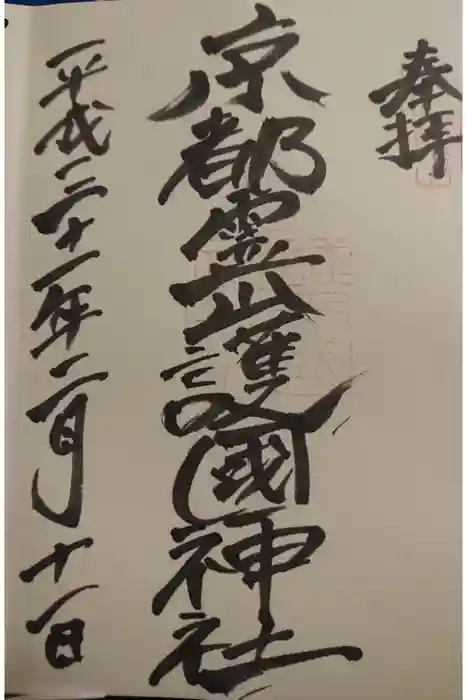 奉拝
京都霊山護國神社
平成三十一年二月十一日